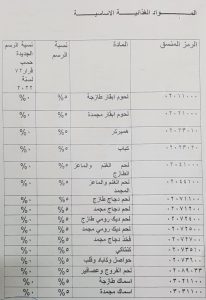 المواد الغذائية الاساسية
الرمز المنسق المادة نسبة الرسم نسبة الرسم الجديدة حسب قرار ٧٢ لسنة ٢٠٢٢
٠٢٠١١٠٠٠ لحوم ابقار طازجة ٥% ٠%
٠٢٠٢١٠٠٠ لحوم ابقار مجمدة ٥% ٠%
٠٢٠٢٣٠١٠ همبركر ٥% ٠%
٠٢٠٢٣٠٢٠ كباب ٥% ٠%
٠٢٠٤١٠٠٠ لحم الغنم والماعز الطازج ٥% ٠%
٠٢٠٤٤١٠٠ لحم الغنم والماعز المجمد ٥% ٠%
٠٢٠٧١١٠٠ لحم دجاج طازج ٥% ٠%
٠٢٠٧١٢٠٠ لحم دجاج مجمد ٥% ٠%
٠٢٠٧٢٤٠٠ لحم ديك رومي طازج ٥% ٠%
٠٢٠٧٢٥٠٠ لحم ديك رومي مجمد ٥% ٠%
٠٢٠٧٢٧٠٠ فخذ دجاج مجمد ٥% ٠%
٥% ٠%
٥% ٠%
لحم الفروج وعصافير ٥% ٠%
٠٣٠٢١١٠٠ اسماك طازجة ٥% ٠%
٠٣٠٣١١٠٠ اسماك مجمدة ٥% ٠%